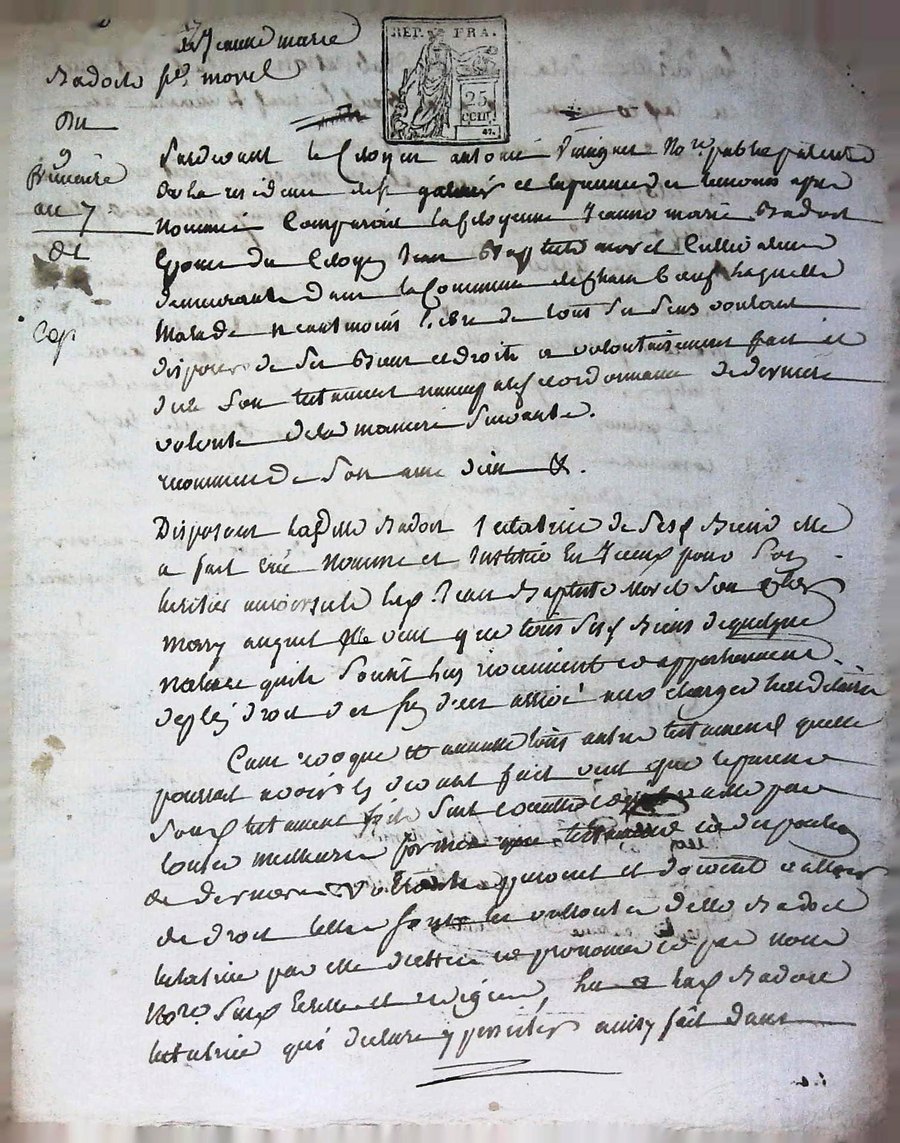 Jeanne marie
Badoit fe morel
Du
9
frimaire
an 7
et
Cop
RÉP. FRA.
25
cent.
Pardevant le Citoyen antoine notre public
de la residence de galmier et les temoins apres
Nommés Comparait la Citoyenne Jeanne marie Badoit
Epouse du Citoyen Jean Baptiste morel Cultivateur
demeurante dans la Commune de Chambœuf Laquelle
Malade neantmoins libre de tous ses sens voulant
disposer de ses Biens et droits a volontairement fait et
dicté Son testament nuncupatif et ordonnance de derniere
volonté de la maniere Suivante.
recommandé Son ame a dieu &.
Disposant lad Badoit testatrice de Sesd Biens elle
a fait créé Nommé et Institué En Iceux pour Son
heritier universel led. Jean Baptiste Morel Son
Mary auquel Elle veut que tous Sesd Biens de quelque
nature quils Soient luy viennent et appartiennent
de plein droit des Son deces aux charges hereditaires
Casse revoque et annulle tous autres testaments quelle
pourrait avoir cy devant fait veut que le present
Soit Son testament Soit vallable par
toute meilleure forme que testaments et dispositions
de derniere Volonté peuvent et doivent valloir
de droit telle sont les vollontes de lad Badoit
testatrice par elle dictées et prononcées et par nous
Nore. Sousd Ecrites et redigées, lu a lad Badoit
testatrice qui declare y persister ainsy fait dans